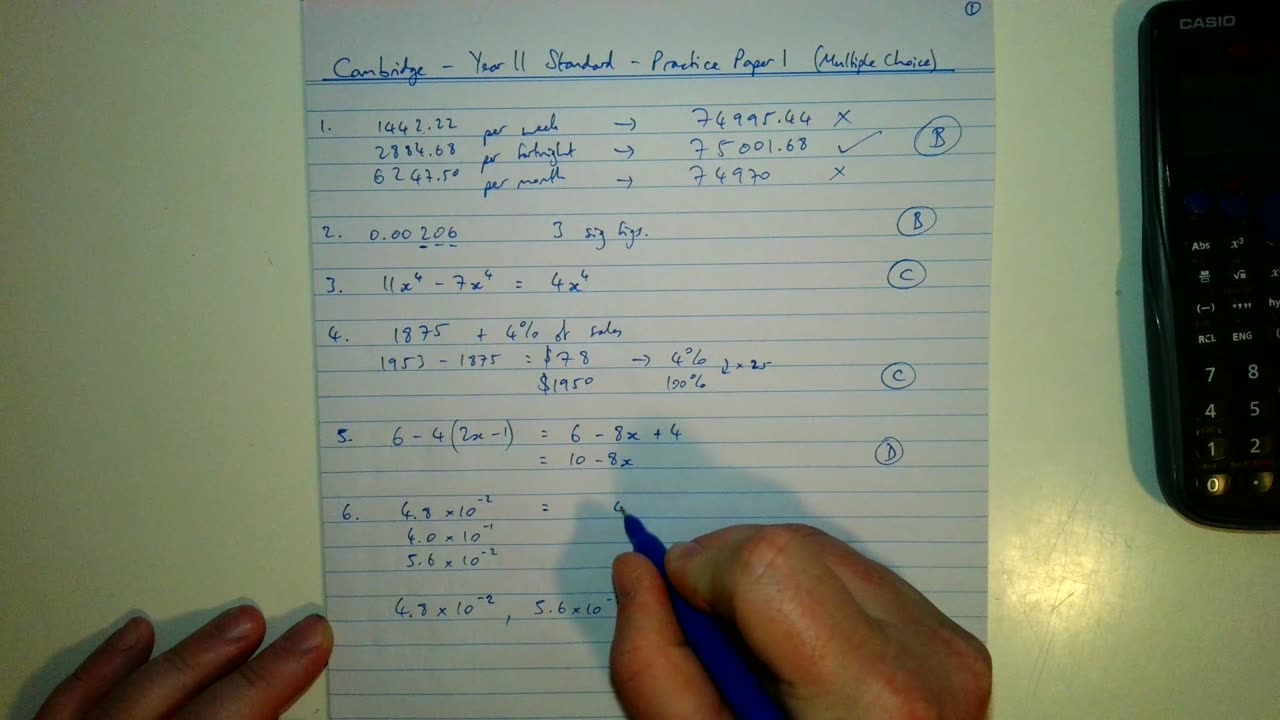 ①
Cambridge - Year 11 Standard - Practice Paper 1 (Multiple Choice)
1. 1442.22 per week → 74995.44 ×
2884.68 per fortnight → 75001.68 ✓ Ⓑ
6247.50 per month → 74970 ×
2. 0.00206 3 sig figs. Ⓑ
3. 11x⁴ - 7x⁴ = 4x⁴ Ⓒ
4. 1875 + 4% of sales
1953 - 1875 = $78 → 4%
$1950 100% × 25 Ⓒ
5. 6 - 4(2x-1) = 6 - 8x + 4
= 10 - 8x Ⓓ
6. 4.8 × 10⁻² = 4
4.0 × 10⁻¹
5.6 × 10⁻²
4.8 × 10⁻², 5.6 × 10⁻
CASIO
Abs x³
√
(-) °'"
RCL ENG
7 8
4 5
1 2
0 ·